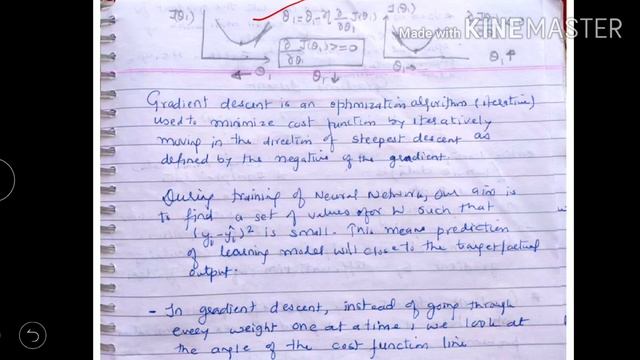 J(θ₁)
θ₁ = θ₁ - η ∂/∂θ₁ J(θ₁)
J(θ₁)
Made with KINEMASTER
∂/∂θ₁ J(θ₁) >= 0
← θ₁
θ₁ ↓
θ₁ →
θ₁ ↑
Gradient descent is an optimization algorithm (iterative)
used to minimize cost function by iteratively
moving in the direction of steepest descent as
defined by the negative of the gradient.
During training of Neural Network, our aim is
to find a set of values for W such that
(yi - ŷi)² is small. This means prediction
of learning model will close to the target/actual
output.
- In gradient descent, instead of going through
every weight one at a time, we look at
the angle of the cost function line